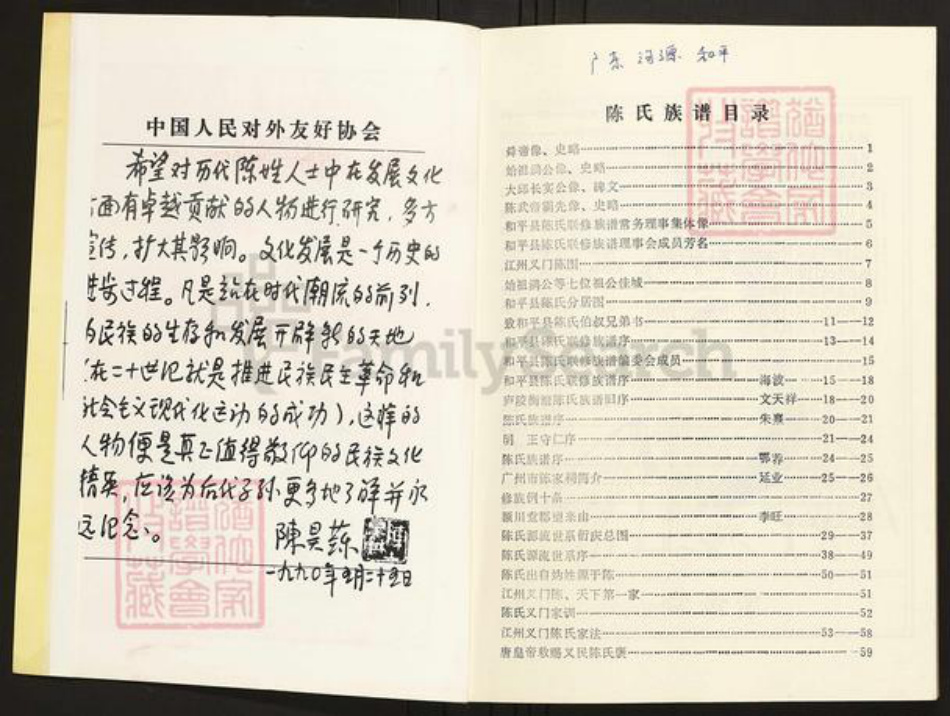 中国人民对外友好协会
希望对历代陈姓人士中在发展文化
方面有卓越贡献的人物进行研究，多方
宣传，扩大其影响。文化发展是一个历史的
进步过程。凡是站在时代潮流的前列，
为民族的生存和发展开辟新的天地
在二十世纪就是推进民族民主革命和
社会主义现代化运动的成功），这样的
人物便是真正值得敬仰的民族文化
精英，应该为后代子孙更多地了解并永
远记念。
陳昊蘇
一九九〇年五月二十五日
广东 河源 和平
陈氏族谱目录
舜帝像、史略 1
始祖满公像、史略 2
太邱长实公像、碑文 3
陈武帝霸先像、史略 4
和平县陈氏联修族谱常务理事集体像 5
和平县陈氏联修族谱理事会成员芳名 6
江州义门陈图 7
始祖满公等七位祖公佳城 8
和平县陈氏分居图 9
致和平县陈氏伯叔兄弟书 11—12
和平县陈氏联修族谱序 13—14
和平县陈氏联修族谱编委会成员 15
和平县陈氏联修族谱序 海波 15—18
庐陵衡塘陈氏族谱旧序 文天祥 18—20
陈氏族谱序 朱熹 20—21
明 王守仁序 21—24
陈氏族谱序 鄂荐 24—25
广州市陈家祠简介 廷业 25—26
修族例十条 27
颍川堂郡望来由 李旺 28
陈氏源流世系衍庆总图 29—37
陈氏源流世系序 38—49
陈氏出自妫姓源于陈 50—51
江州义门陈、天下第一家 51
陈氏义门家训 52
江州义门陈氏家法 53—58
唐皇帝敕赐义民陈氏褒 59
FamilySearch